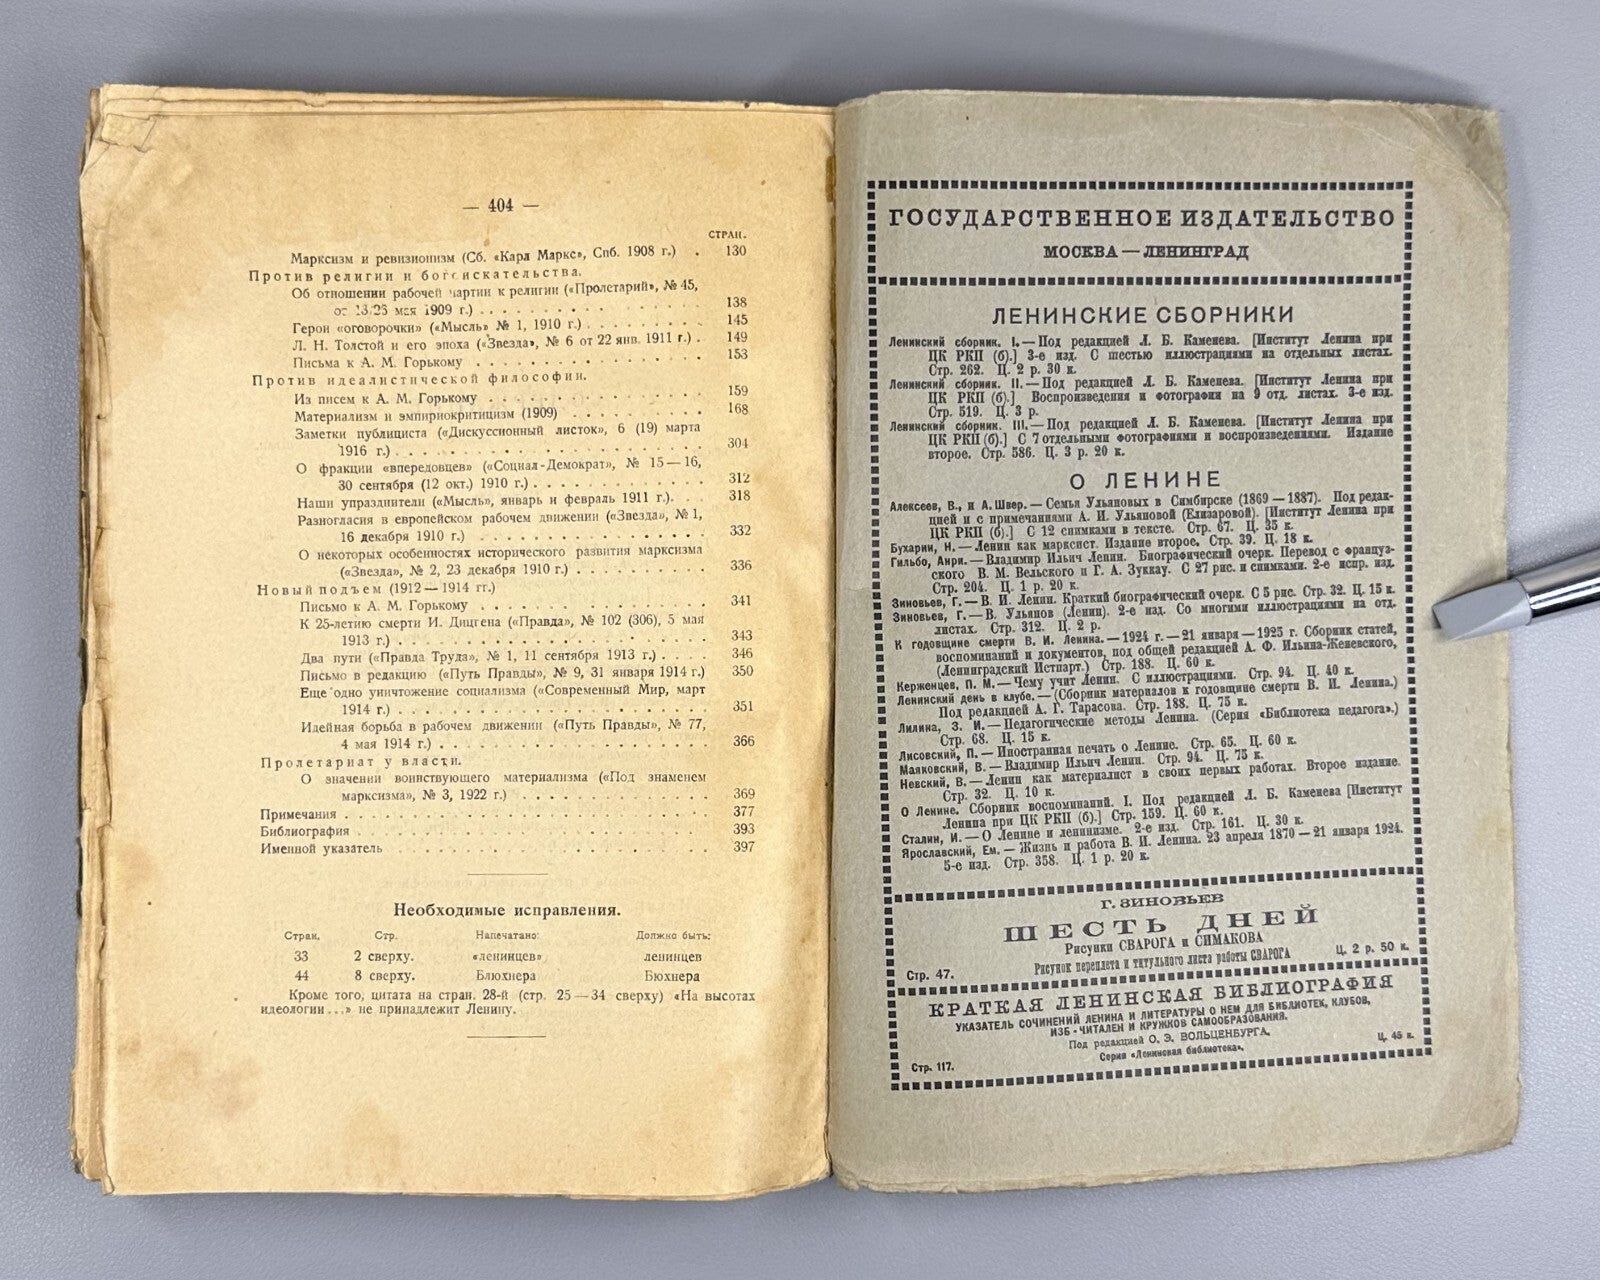 — 404 —
СТРАН.
Марксизм и ревизионизм (Сб. «Карл Маркс», Спб. 1908 г.) . 130
Против религии и богоискательства.
Об отношении рабочей партии к религии («Пролетарий», № 45,
от 13/26 мая 1909 г.) . . . . . . . . . . . . 138
Герои «оговорочки» («Мысль» № 1, 1910 г.) . . . . . . . . 145
Л. Н. Толстой и его эпоха («Звезда», № 6 от 22 янв. 1911 г.) . 149
Письма к А. М. Горькому . . . . . . . . . . . . . 153
Против идеалистической философии.
Из писем к А. М. Горькому . . . . . . . . . . . . 159
Материализм и эмпириокритицизм (1909) . . . . . . . . 168
Заметки публициста («Дискуссионный листок», 6 (19) марта
1916 г.) . . . . . . . . . . . . . . . . . 304
О фракции «впередовцев» («Социал-Демократ», № 15—16,
30 сентября (12 окт.) 1910 г.) . . . . . . . . . . 312
Наши упразднители («Мысль», январь и февраль 1911 г.). . . 318
Разногласия в европейском рабочем движении («Звезда», № 1,
16 декабря 1910 г.) . . . . . . . . . . . . . 332
О некоторых особенностях исторического развития марксизма
(«Звезда», № 2, 23 декабря 1910 г.) . . . . . . . . 336
Новый подъем (1912—1914 гг.)
Письмо к А. М. Горькому . . . . . . . . . . . . . 341
К 25-летию смерти И. Дицгена («Правда», № 102 (306), 5 мая
1913 г.) . . . . . . . . . . . . . . . . . 343
Два пути («Правда Труда», № 1, 11 сентября 1913 г.) . . . . 346
Письмо в редакцию («Путь Правды», № 9, 31 января 1914 г.) 350
Еще одно уничтожение социализма («Современный Мир, март
1914 г.) . . . . . . . . . . . . . . . . . 351
Идейная борьба в рабочем движении («Путь Правды», № 77,
4 мая 1914 г.) . . . . . . . . . . . . . . . 366
Пролетариат у власти.
О значении воинствующего материализма («Под знаменем
марксизма», № 3, 1922 г.) . . . . . . . . . . . 369
Примечания . . . . . . . . . . . . . . . . . . . 377
Библиография . . . . . . . . . . . . . . . . . . 393
Именной указатель . . . . . . . . . . . . . . . . 397
Необходимые исправления.
Стран. Стр. Напечатано: Должно быть:
33 2 сверху. «ленинцев» ленинцев
44 8 сверху. Блюхнера Бюхнера
Кроме того, цитата на стран. 28-й (стр. 25—34 сверху) «На высотах
идеологии...» не принадлежит Ленину.
ГОСУДАРСТВЕННОЕ ИЗДАТЕЛЬСТВО
МОСКВА—ЛЕНИНГРАД
ЛЕНИНСКИЕ СБОРНИКИ
Ленинский сборник. I.—Под редакцией Л. Б. Каменева. [Институт Ленина при
ЦК РКП (б).] 3-е изд. С шестью иллюстрациями на отдельных листах.
Стр. 262. Ц. 2 р. 30 к.
Ленинский сборник. II.—Под редакцией Л. Б. Каменева. [Институт Ленина при
ЦК РКП (б).] Воспроизведения и фотографии на 9 отд. листах. 3-е изд.
Стр. 519. Ц. 3 р.
Ленинский сборник. III.—Под редакцией Л. Б. Каменева. [Институт Ленина при
ЦК РКП (б).] С 7 отдельными фотографиями и воспроизведениями. Издание
второе. Стр. 586. Ц. 3 р. 20 к.
О ЛЕНИНЕ
Алексеев, В., и А. Швер.—Семья Ульяновых в Симбирске (1869—1887). Под редак-
цией и с примечаниями А. И. Ульяновой (Елизаровой). [Институт Ленина при
ЦК РКП (б).] С 12 снимками в тексте. Стр. 67. Ц. 35 к.
Бухарин, Н.—Ленин как марксист. Издание второе. Стр. 39. Ц. 18 к.
Гильбо, Анри.—Владимир Ильич Ленин. Биографический очерк. Перевод с француз-
ского В. М. Вельского и Г. А. Зуккау. С 27 рис. и снимками. 2-е испр. изд.
Стр. 204. Ц. 1 р. 20 к.
Зиновьев, Г.—В. И. Ленин. Краткий биографический очерк. С 5 рис. Стр. 32. Ц. 15 к.
Зиновьев, Г.—В. Ульянов (Ленин). 2-е изд. Со многими иллюстрациями на отд.
листах. Стр. 312. Ц. 2 р.
К годовщине смерти В. И. Ленина.—1924 г.—21 января—1925 г. Сборник статей,
воспоминаний и документов, под общей редакцией А. Ф. Ильина-Женевского,
(Ленинградский Истпарт.) Стр. 188. Ц. 60 к.
Керженцев, П. М.—Чему учит Ленин. С иллюстрациями. Стр. 94. Ц. 40 к.
Ленинский день в клубе.—(Сборник материалов к годовщине смерти В. И. Ленина.)
Под редакцией А. Г. Тарасова. Стр. 188. Ц. 75 к.
Лилина, З. И.—Педагогические методы Ленина. (Серия «Библиотека педагога».)
Стр. 68. Ц. 15 к.
Лисовский, П.—Иностранная печать о Ленине. Стр. 65. Ц. 60 к.
Маяковский, В.—Владимир Ильич Ленин. Стр. 94. Ц. 75 к.
Невский, В.—Ленин как материалист в своих первых работах. Второе издание.
Стр. 32. Ц. 10 к.
О Ленине. Сборник воспоминаний. I. Под редакцией Л. Б. Каменева [Институт
Ленина при ЦК РКП (б).] Стр. 159. Ц. 60 к.
Сталин, И.—О Ленине и ленинизме. 2-е изд. Стр. 161. Ц. 30 к.
Ярославский, Ем.—Жизнь и работа В. И. Ленина. 23 апреля 1870—21 января 1924.
5-е изд. Стр. 358. Ц. 1 р. 20 к.
Г. ЗИНОВЬЕВ
ШЕСТЬ ДНЕЙ
Рисунки СВАРОГА и СИМАКОВА
Рисунок переплета и титульного листа работы СВАРОГА
Стр. 47. Ц. 2 р. 50 к.
КРАТКАЯ ЛЕНИНСКАЯ БИБЛИОГРАФИЯ
УКАЗАТЕЛЬ СОЧИНЕНИЙ ЛЕНИНА И ЛИТЕРАТУРЫ О НЕМ ДЛЯ БИБЛИОТЕК, КЛУБОВ,
ИЗБ-ЧИТАЛЕН И КРУЖКОВ САМООБРАЗОВАНИЯ.
Под редакцией О. Э. ВОЛЬЦЕНБУРГА.
Серия «Ленинская библиотека».
Стр. 117. Ц. 45 к.